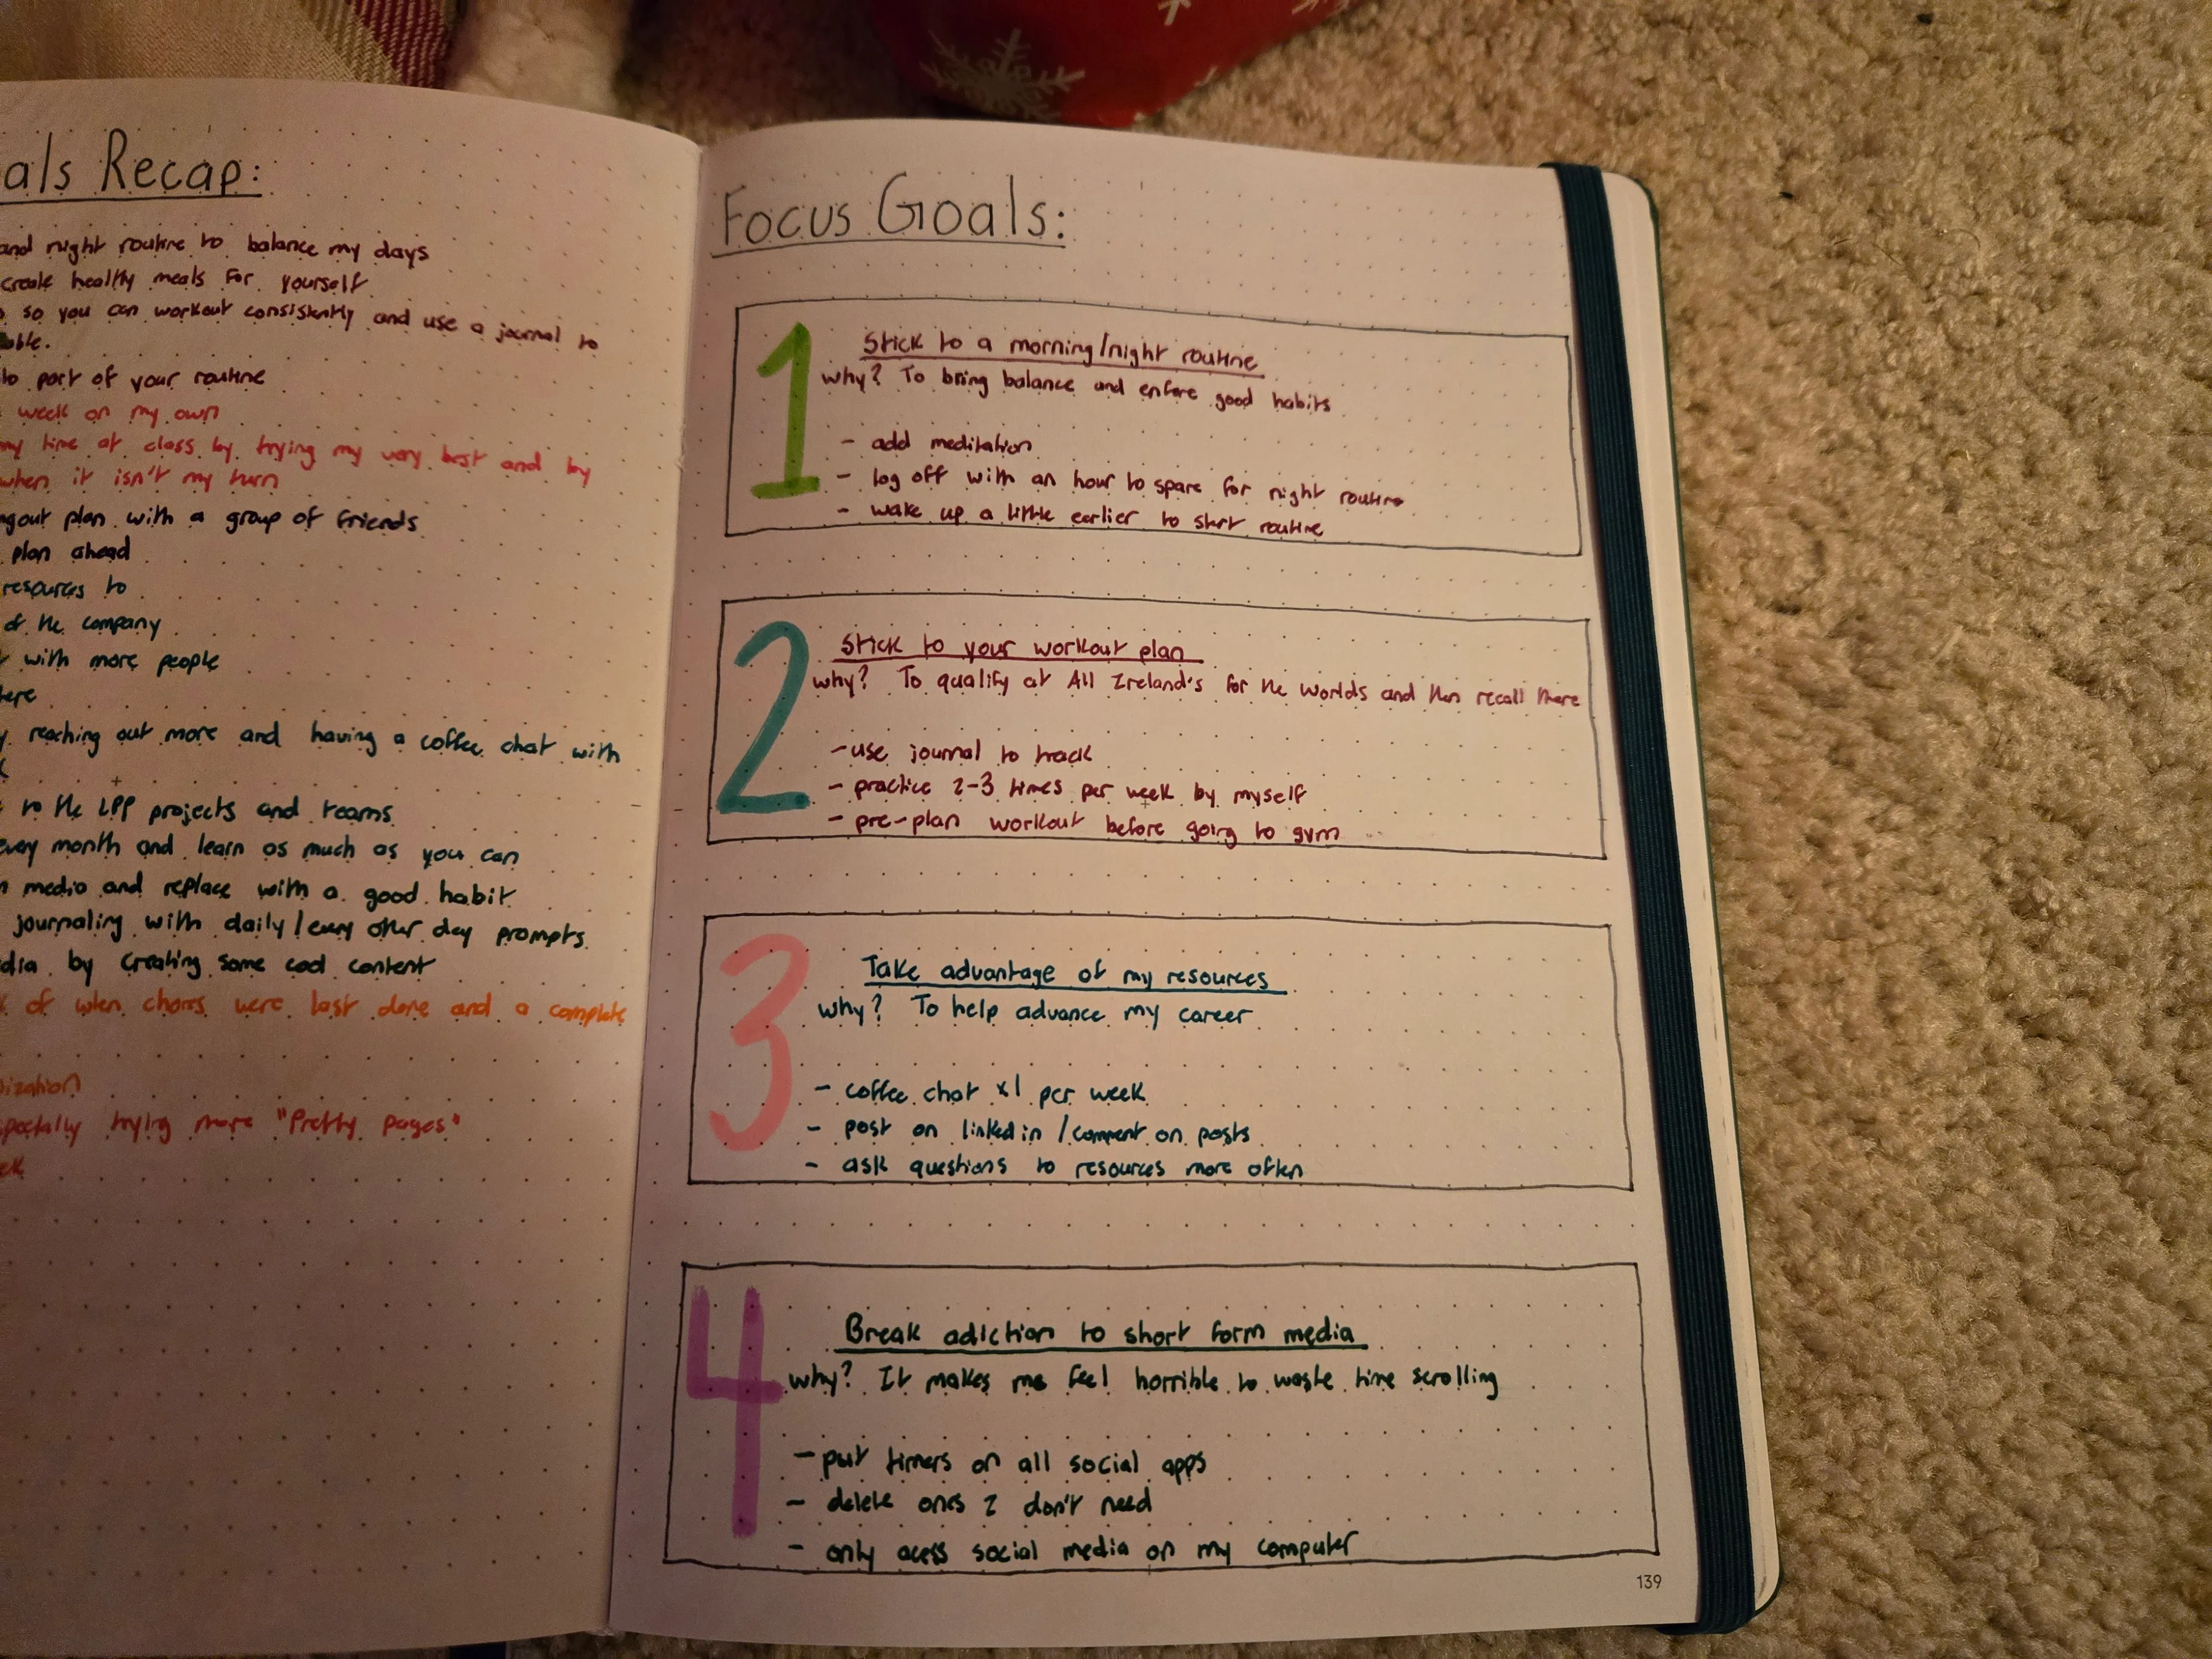 als Recap:
and night routine to balance my days
create healthy meals for yourself
so you can workout consistently and use a journal to
able.
to part of your routine
week on my own
my time at class by trying my very best and by
when it isn't my turn
ngout plan with a group of friends
plan ahead
resources to
of the company
with more people
here
reaching out more and having a coffee chat with
to the LPP projects and teams
every month and learn as much as you can
media and replace with a good habit
journaling with daily/every other day prompts
dia by creating some cool content
of when chores were last done and a complete
ization
specially trying more "Pretty pages"
ek
Focus Goals:
1
Stick to a morning/night routine
why? To bring balance and enfore good habits
- add meditation
- log off with an hour to spare for night routine
- wake up a little earlier to start routine
2
Stick to your workout plan
why? To qualify at All Ireland's for the Worlds and then recall there
- use journal to track
- practice 2-3 times per week by myself
- pre-plan workout before going to gym
3
Take advantage of my resources
why? To help advance my career
- coffee chat x1 per week
- post on linkedin /comment on posts
- ask questions to resources more often
4
Break adiction to short form media
why? It makes me feel horrible to waste time scrolling
- put timers on all social apps
- delete ones I don't need
- only acess social media on my computer
139